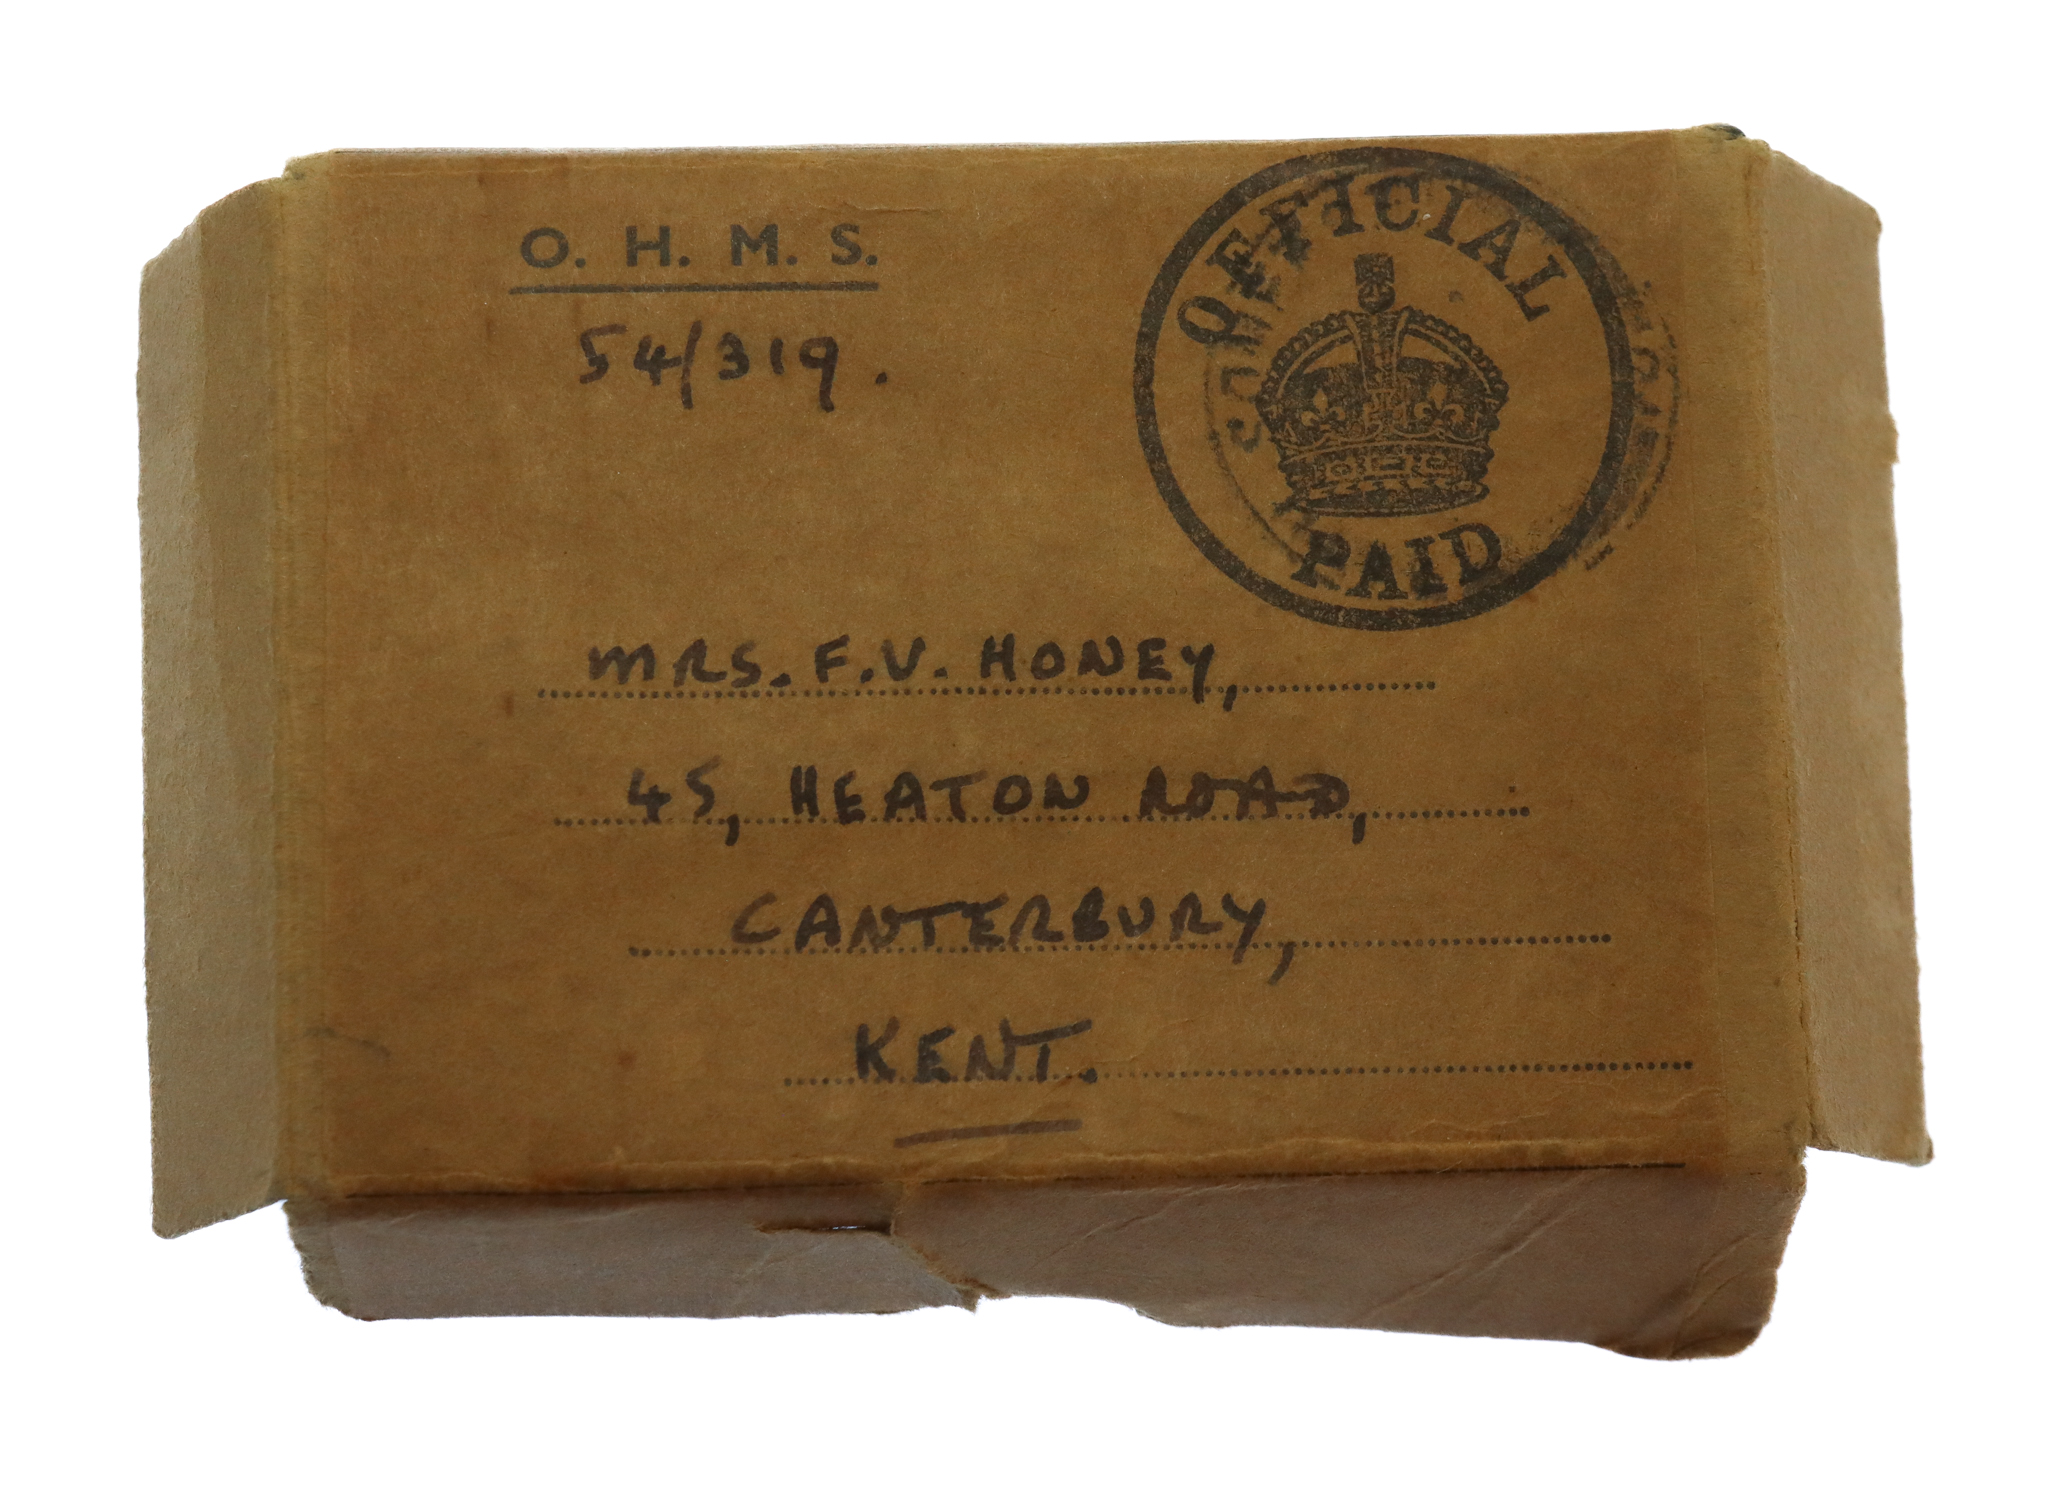 O. H. M. S.
54/319.
OFFICIAL
PAID
MRS. F.V. HONEY,
45, HEATON ROAD,
CANTERBURY,
KENT.